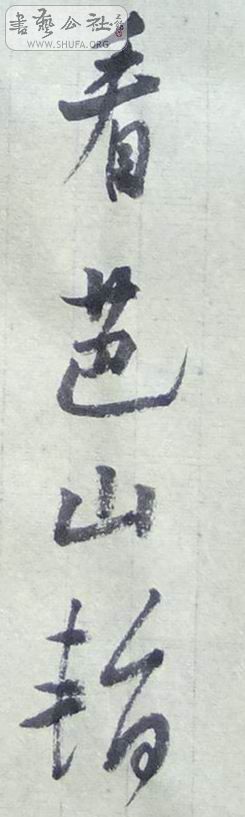 書藝公社
WWW.SHUFA.ORG
看芭山